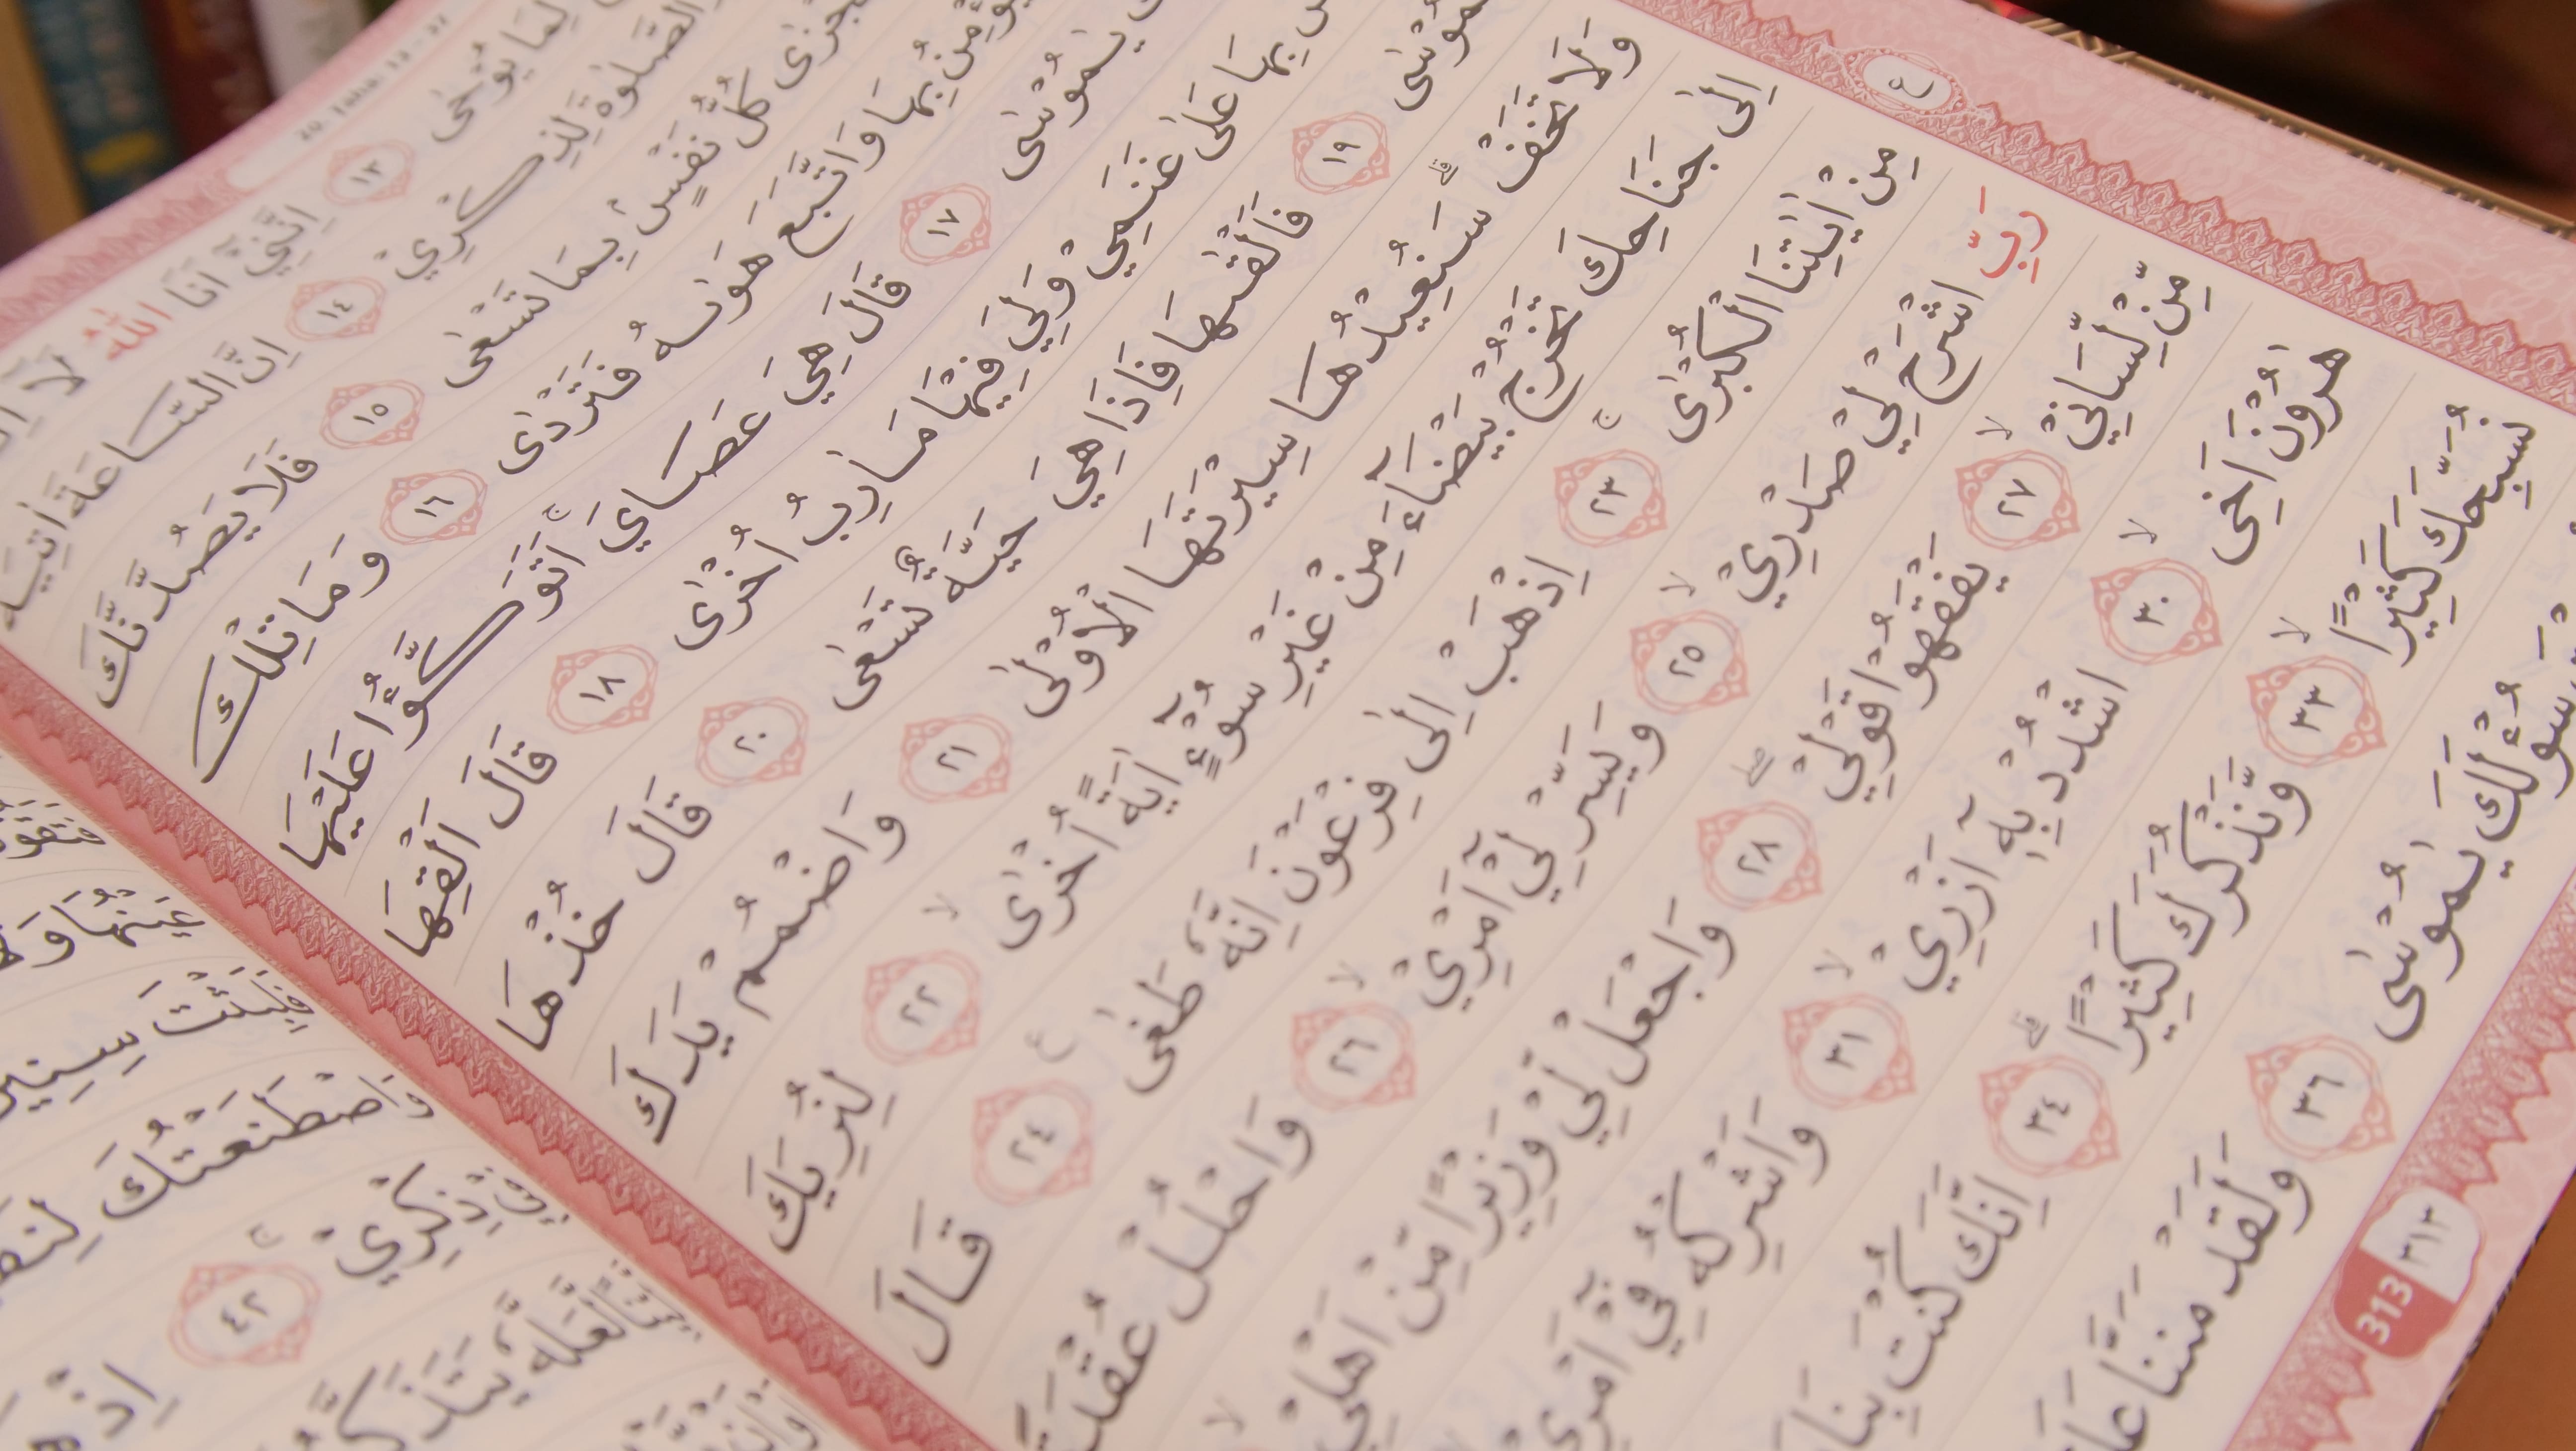 20. Taha: 13 - 37
لِمَا يُوْحٰى ١٣ اِنَّنِيْٓ اَنَا اللّٰهُ لَآ
الصَّلٰوةَ لِذِكْرِيْ ١٤ اِنَّ السَّاعَةَ اٰتِيَةٌ
كُلُّ نَفْسٍۢ بِمَا تَسْعٰى ١٥ فَلَا يَصُدَّنَّكَ
يُؤْمِنُ بِهَا وَاتَّبَعَ هَوٰىهُ فَتَرْدٰى ١٦ وَمَا تِلْكَ
يٰمُوْسٰى ١٧ قَالَ هِيَ عَصَايَۚ اَتَوَكَّؤُا عَلَيْهَا
بِهَا عَلٰى غَنَمِيْ وَلِيَ فِيْهَا مَاٰرِبُ اُخْرٰى ١٨ قَالَ اَلْقِهَا
يٰمُوْسٰى ١٩ فَاَلْقٰىهَا فَاِذَا هِيَ حَيَّةٌ تَسْعٰى ٢٠ قَالَ خُذْهَا
وَلَا تَخَفْۗ سَنُعِيْدُهَا سِيْرَتَهَا الْاُوْلٰى ٢١ وَاضْمُمْ يَدَكَ
اِلٰى جَنَاحِكَ تَخْرُجْ بَيْضَاۤءَ مِنْ غَيْرِ سُوْۤءٍ اٰيَةً اُخْرٰىۙ ٢٢ لِنُرِيَكَ
مِنْ اٰيٰتِنَا الْكُبْرٰىۚ ٢٣ اِذْهَبْ اِلٰى فِرْعَوْنَ اِنَّهٗ طَغٰى ع ٢٤ قَالَ
رَبِّ اشْرَحْ لِيْ صَدْرِيْۙ ٢٥ وَيَسِّرْ لِيْٓ اَمْرِيْۙ ٢٦ وَاحْلُلْ عُقْدَةً
مِّنْ لِّسَانِيْۙ ٢٧ يَفْقَهُوْا قَوْلِيْۖ ٢٨ وَاجْعَلْ لِّيْ وَزِيْرًا مِّنْ اَهْلِيْۙ
هٰرُوْنَ اَخِىۙ ٣٠ اشْدُدْ بِهٖٓ اَزْرِيْۙ ٣١ وَاَشْرِكْهُ فِيْٓ اَمْرِيْ
نُسَبِّحَكَ كَثِيْرًاۙ ٣٣ وَّنَذْكُرَكَ كَثِيْرًاۗ ٣٤ اِنَّكَ كُنْتَ بِنَا
سُؤْلَكَ يٰمُوْسٰى ٣٦ وَلَقَدْ مَنَنَّا
ع
٣١٣
313
عَيْنُهَا
فَلَبِثْتَ سِنِيْنَ
وَاصْطَنَعْتُكَ
فِيْ ذِكْرِيْۚ ٤٢
لَّعَلَّهٗ يَتَذَكَّرُ